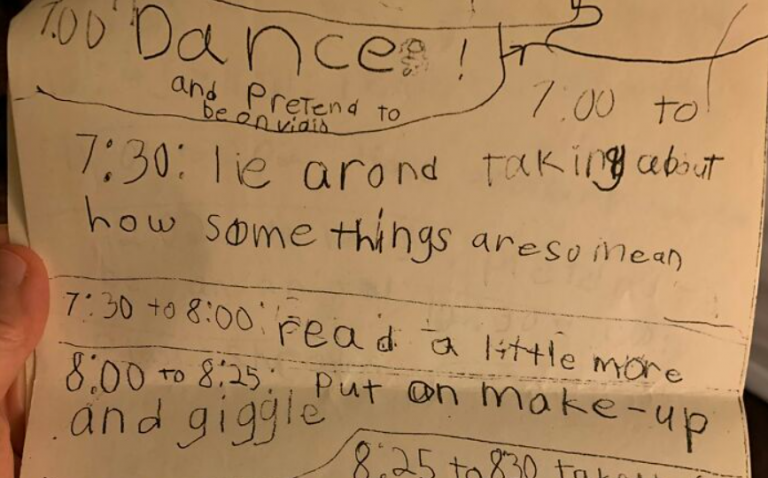 7:00 Dance !
and Pretend to
be on vidis
7:00 to
7:30: lie arond taking about
how some things are so mean
7:30 to 8:00: read a little more
8:00 to 8:25: put on make-up
and giggle
8:25 to 830